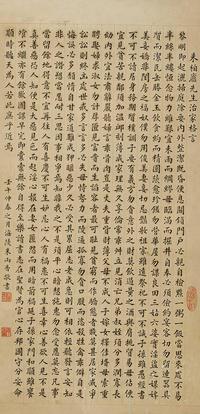 朱柏廬先生治家格言
黎明即起灑掃庭除要內外整潔既昏便息關鎖門户必親自檢點一粥一飯當思來處不易
半絲半縷恒念物力維艱宜未雨而綢繆毋臨渴而掘井自奉必須儉約宴客切勿留連器具
質而潔瓦缶勝金玉飲食約而精園蔬愈珍饈勿營華屋勿謀良田三姑六婆實淫盜之媒婢
美妾嬌非閨房之福奴僕勿用俊美妻妾切忌艷妝祖宗雖遠祭祀不可不誠子孫雖愚經書
不可不讀居身務期質樸訓子要有義方勿貪意外之財勿飲過量之酒與肩挑貿易毋佔便
宜見貧苦親鄰須加溫卹刻薄成家理無久享倫常乖舛立見消亡兄弟叔姪須分多潤寡長
幼內外宜法肅辭嚴聽婦言乖骨肉豈是丈夫重資財薄父母不成人子嫁女擇佳婿毋索重
聘娶媳求淑女勿計厚奩見富貴而生諂容者最可恥遇貧窮而作驕態者賤莫甚居家戒爭
訟訟則終凶處世戒多言言多必失毋恃勢力而凌逼孤寡勿貪口腹而恣殺牲禽乖僻自
是悔誤必多頹惰自甘家道難成狎暱惡少久必受其累屈志老成急則可相依輕聽發言安知
非人之譖愬當忍耐三思因事相爭焉知非我之不是須平心暗想施惠無念受恩莫忘凡事
當留餘地得意不宜再往人有喜慶不可生妒忌心人有禍患不可生喜幸心善欲人見不是
真善惡恐人知便是大惡見色而起淫心報在妻女匿怨而用暗箭禍延子孫家門和順雖饔
飧不繼亦有餘歡國課早完即囊橐無餘自得至樂讀書志在聖賢為官心存君國守分安命
順時聽天為人若此庶乎近焉
壬申仲春之月海陵朱山香敬書